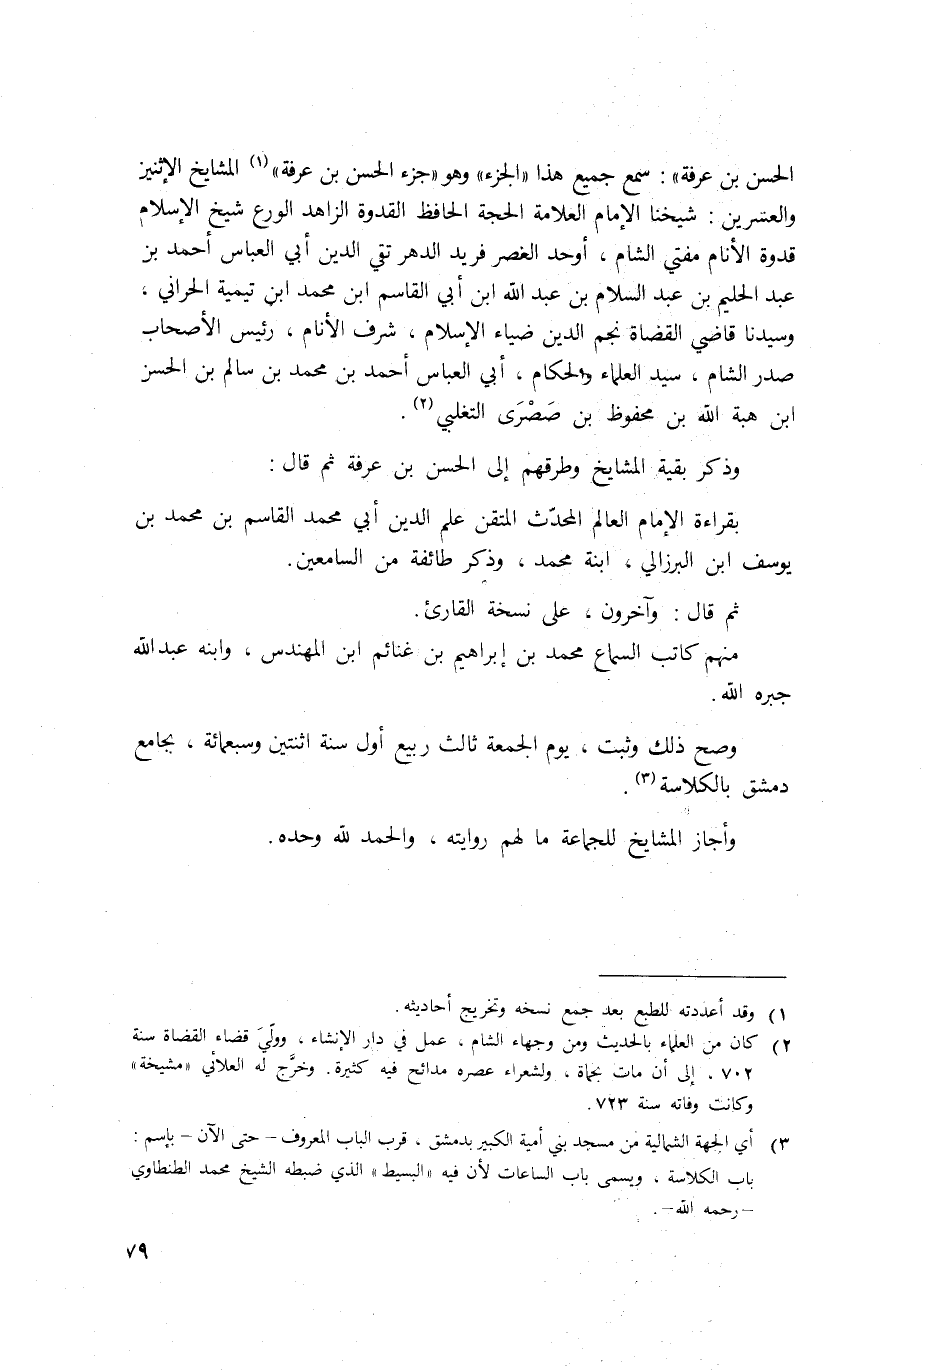 الحسن بن عرفة» : سمع جميع هذا «الجزء» وهو «جزء الحسن بن عرفة»(١) المشايخ الإثنيز
والعشرين : شيخنا الإمام العلامة الحجة الحافظ القدوة الزاهد الورع شيخ الإسلام
قدوة الأنام مفتي الشام ، أوحد العصر فريد الدهر تقي الدين أبي العباس أحمد بن
عبد الحليم بن عبد السلام بن عبد الله ابن أبي القاسم ابن محمد ابن تيمية الحراني ،
وسيدنا قاضي القضاة نجم الدين ضياء الإسلام ، شرف الأنام ، رئيس الأصحاب
صدر الشام ، سيد العلماء والحكام ، أبي العباس أحمد بن محمد بن سالم بن الحسن
ابن هبة الله بن محفوظ بن صَصْرَى التغلبي(٢) .
وذكر بقية المشايخ وطرقهم إلى الحسن بن عرفة ثم قال :
بقراءة الإمام العالم المحدّث المتقن علم الدين أبي محمد القاسم بن محمد بن
يوسف ابن البرزالي ، ابنة محمد ، وذكر طائفة من السامعين.
ثم قال : وآخرون ، على نسخة القارئ.
منهم كاتب السماع محمد بن إبراهيم بن غنائم ابن المهندس ، وابنه عبدالله
جبره الله.
وصح ذلك وثبت ، يوم الجمعة ثالث ربيع أول سنة اثنتين وسبعمائة ، بجامع
دمشق بالكلاسة(٣) .
وأجاز المشايخ للجماعة ما لهم روايته ، والحمد لله وحده.
١) وقد أعددته للطبع بعد جمع نسخه وتخريج أحاديثه.
٢) كان من العلماء بالحديث ومن وجهاء الشام ، عمل في دار الإنشاء ، وولّيَ قضاء القضاة سنة
٧٠٢ ، إلى أن مات بحماة ، ولشعراء عصره مدائح فيه كثيرة. وخرَّج له العلائي «مشيخة»
وكانت وفاته سنة ٧٢٣.
٣) أي الجهة الشمالية من مسجد بني أمية الكبير بدمشق ، قرب الباب المعروف - حتى الآن - بإسم :
باب الكلاسة ، ويسمى باب الساعات لأن فيه «البسيط» الذي ضبطه الشيخ محمد الطنطاوي
-رحمه الله-.
٧٩